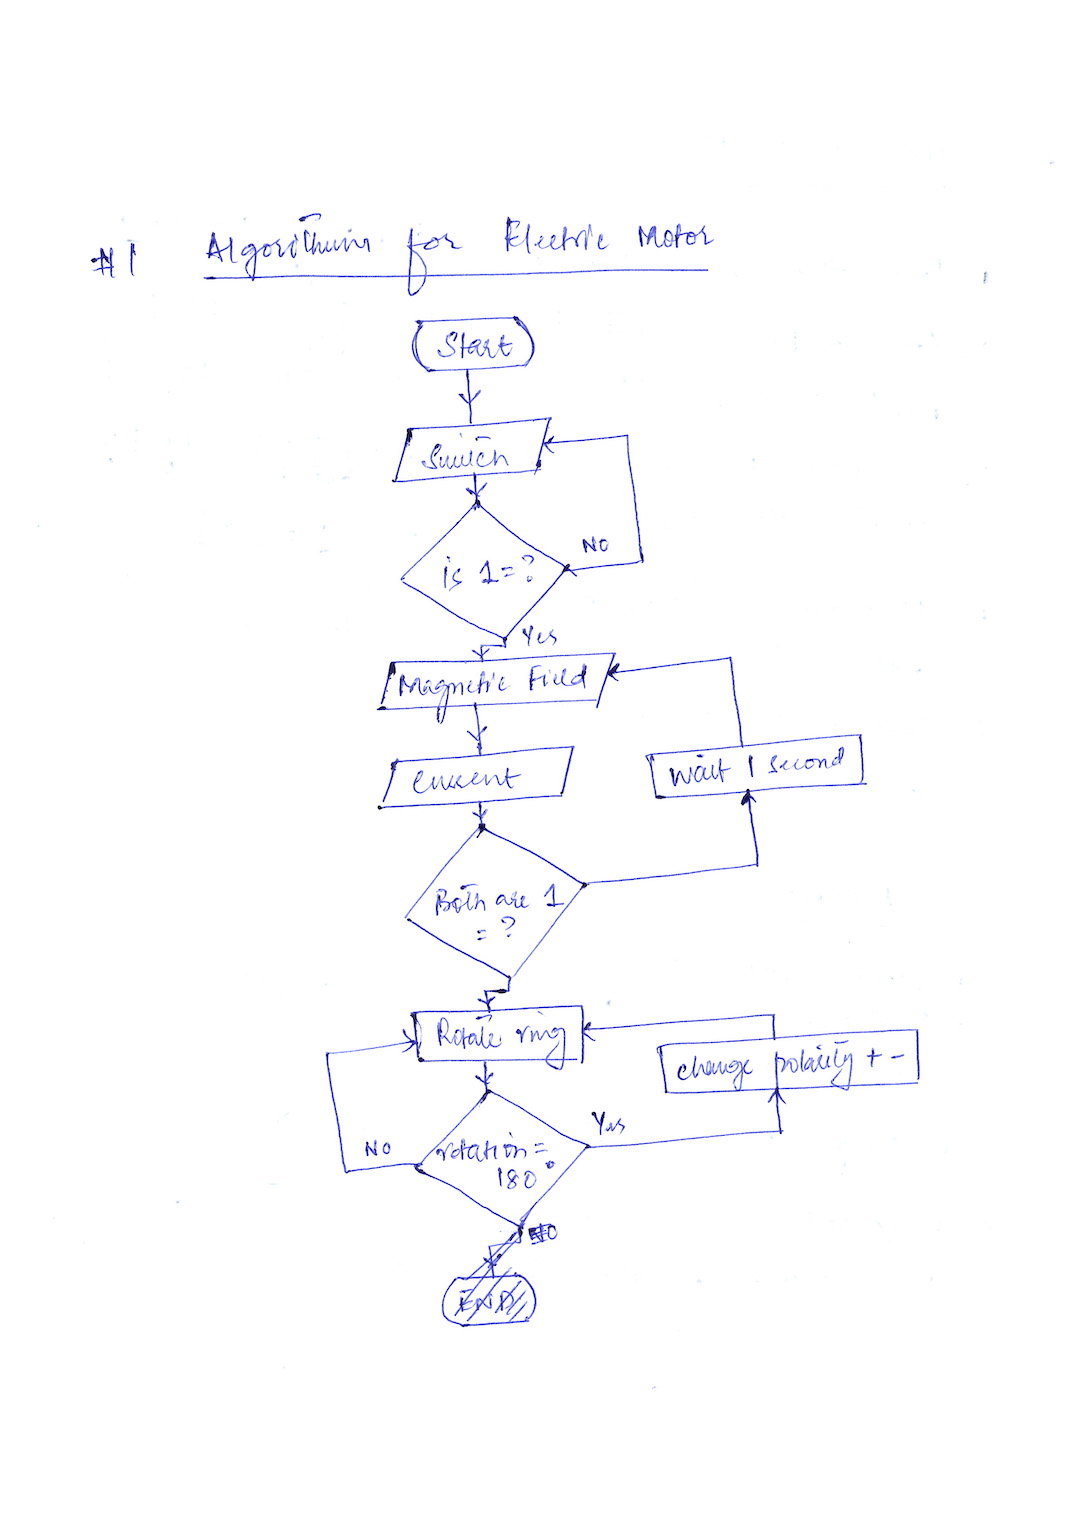 #1 Algorithm for Electric Motor
Start
Switch
is 1=?
NO
Yes
Magnetic Field
Current
Wait 1 second
Both are 1
= ?
Rotate ring
change polarity + -
rotation =
180°
Yes
NO
NO
END